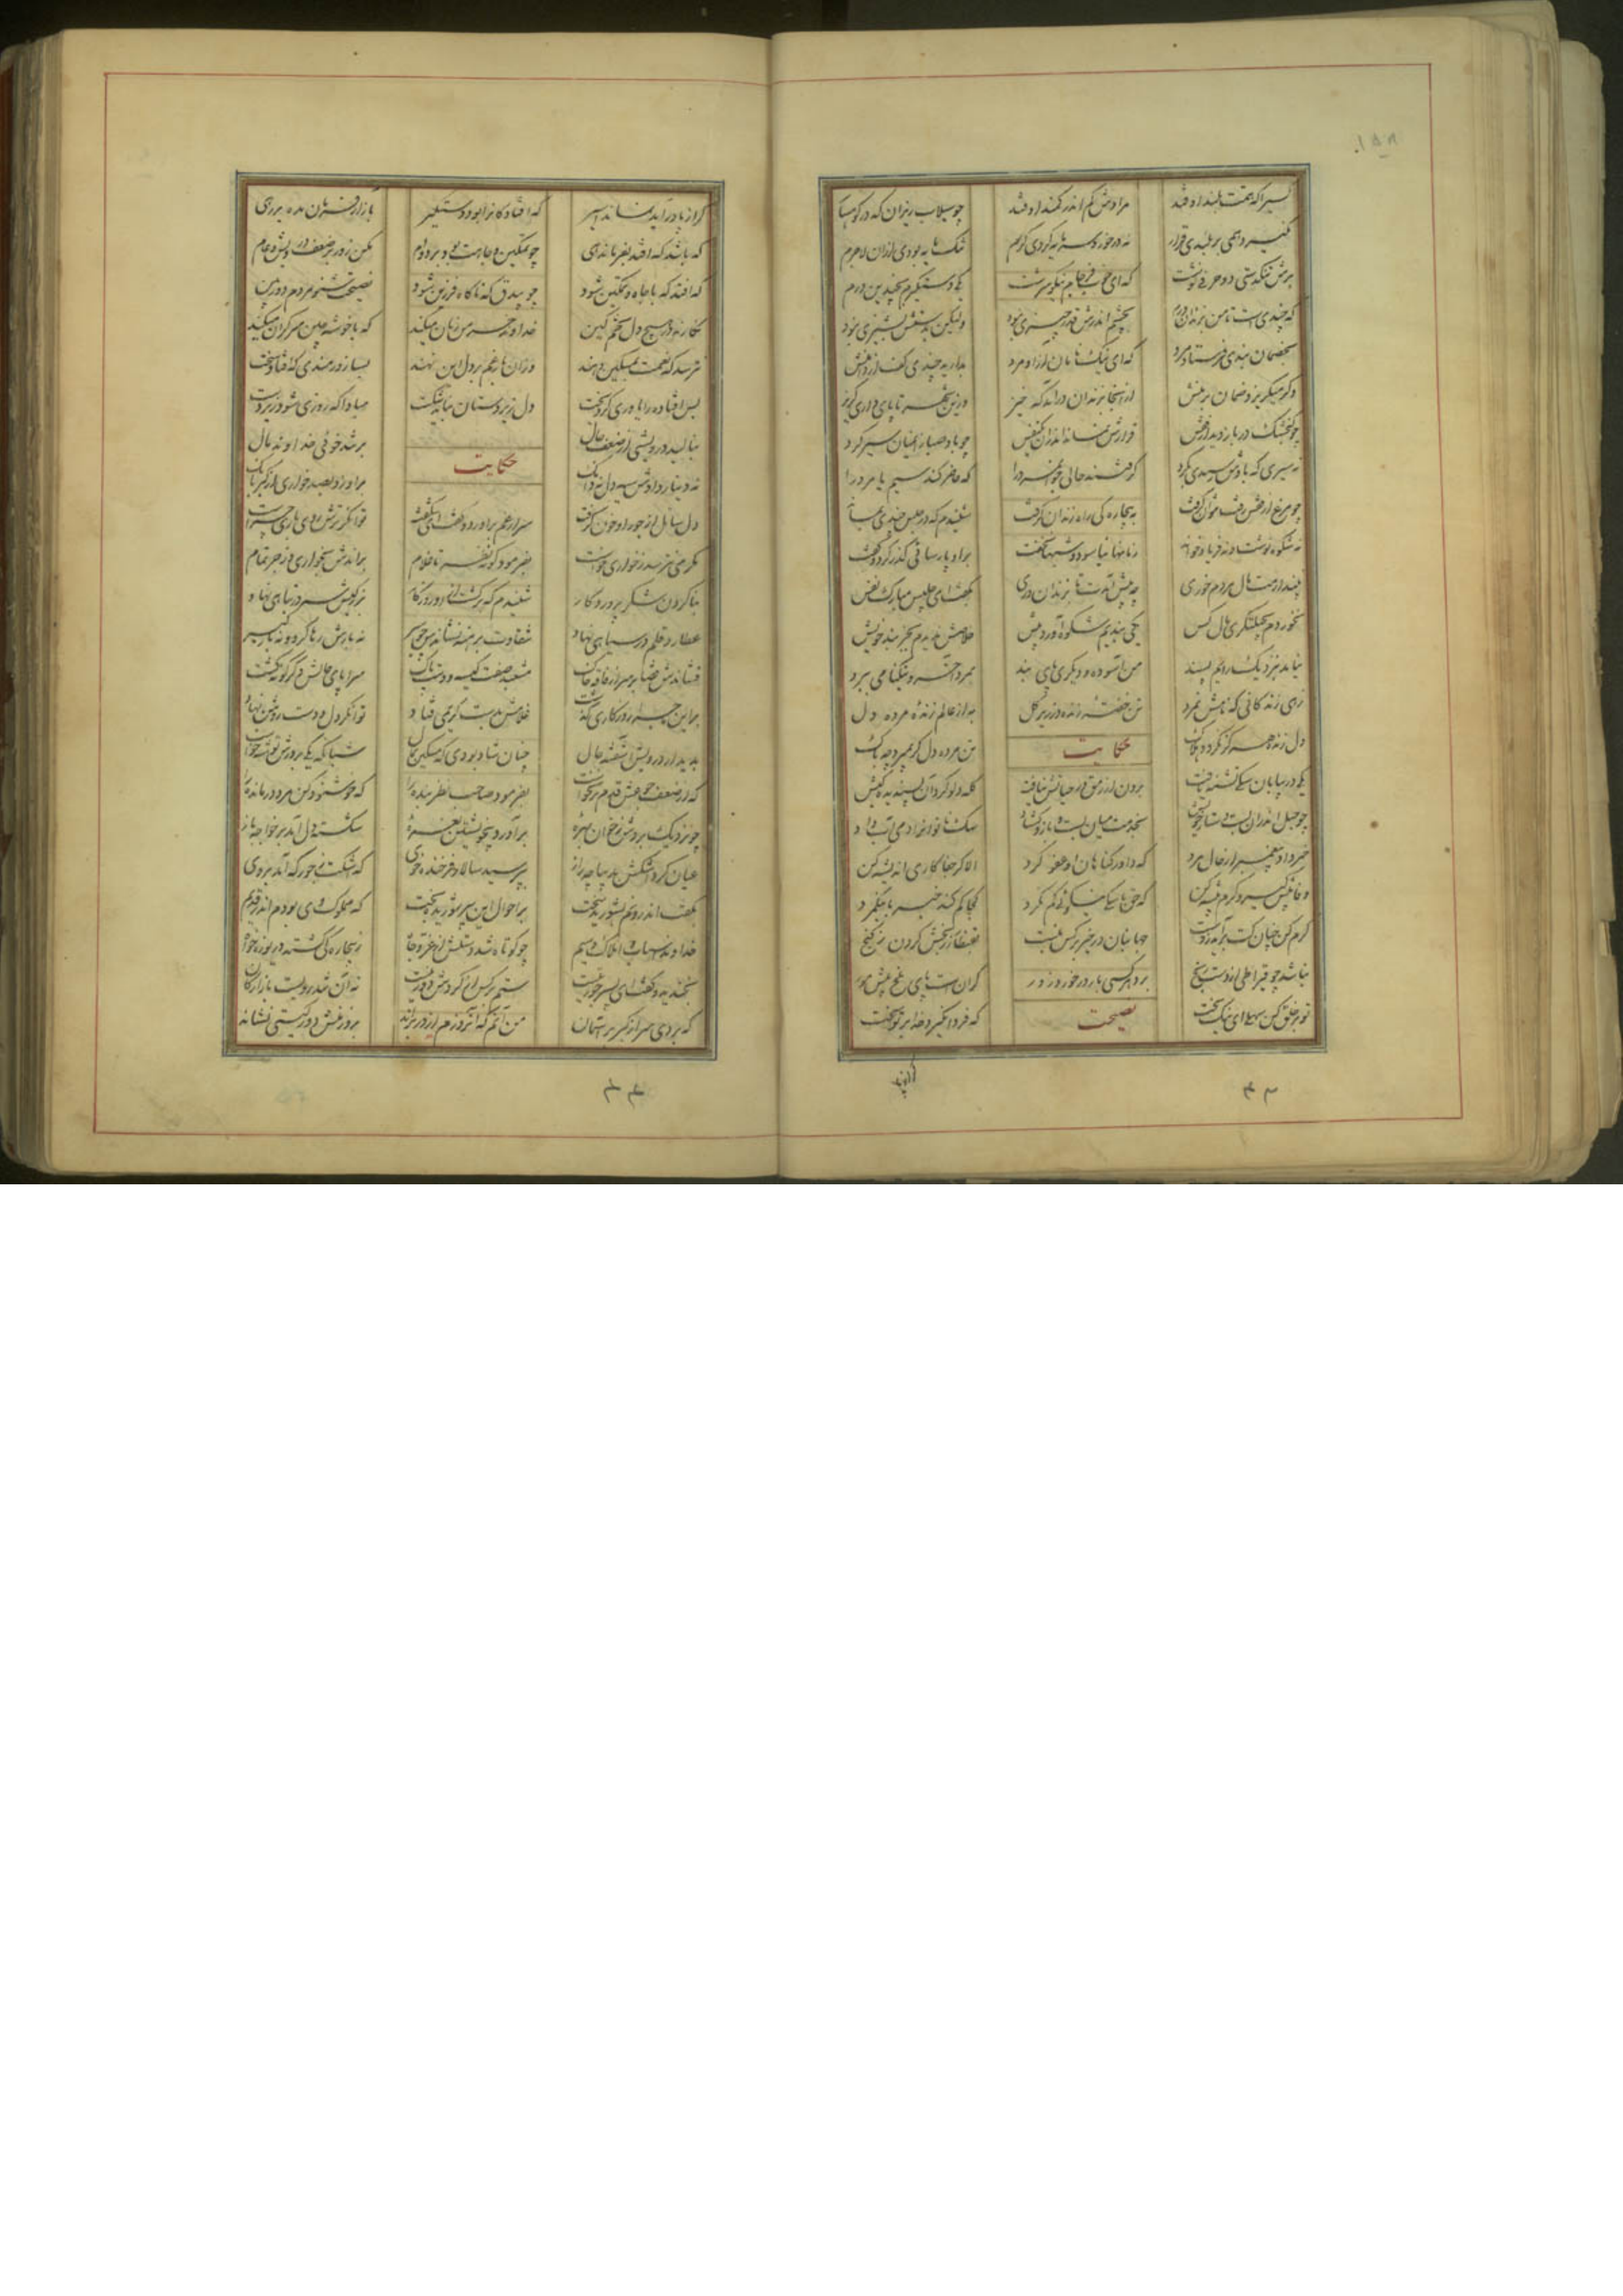 کسی را که همت بلند اوفتد مرادش کم اندر کمند اوفتد چو سیلاب ریزان که در کوهسار
نگیرد همی بر بلندی قرار نه در خورد سرمایه کردی کرم تنک مایه بودی ازان لاجرم
برش تنگدستی دو حرفی نوشت که ای خوب فرجام نیکو سرشت یکی دست گیرم بچندین درم
که چندی است تا من بزندان درم بچشم اندرش قدر چیزی نبود ولیکن بدستش پشیزی نبود
بخصمان بندی فرستاد مرد که ای نیک نامان آزاد مرد بدارید چندی کف از دامنش
وگر میگریزد ضمان بر منش از آنجا بزندان درآمد که خیز وزین شهر تا پای داری گریز
چو گنجشک در باز دید از قفس قرارش نماند اندران یکنفس چو باد صبا زان میان سیر کرد
نه سیری که بادش رسیدی بگرد گرفتند حالی جوانمرد را که حاضر کند سیم یا مرد را
چو مرغ از قفس رفت نتوان گرفت به بیچارگی راه زندان گرفت شنیدم که در حبس چندی بماند
نه شکوه نوشت و نه فریاد خواند زمانها نیاسود و شبها نخفت برو پارسائی گذر کرد و گفت
نپندارمت مال مردم خوری چه پیش آمدت تا بزندان دری بگفت ای جلیس مبارک نفس
نخوردم بحیلتگری مال کس یکی بندیم شکوه آورد پیش خلاصش ندیدم بجز بند خویش
نیامد بنزدیک رایم پسند من آسوده و دیگری پای بند بمرد آخر و نیکنامی ببرد
زهی زندگانی که نامش نمرد تن خفته زنده در زیر گل به از عالم زنده مرده دل
دل زنده هرگز نگردد هلاک حکایت تن مرده دل گر بمیرد چه باک
یکی در بیابان سگی تشنه یافت برون از رمق در حیاتش نیافت کله دلو کرد آن پسندیده کیش
چو حبل اندران بست دستار خویش بخدمت میان بست و بازو گشاد سگ ناتوان را دمی آب داد
خبر داد پیغمبر از حال مرد که داور گناهان او عفو کرد الا گر جفا کاری اندیشه کن
وفا پیش گیر و کرم پیشه کن که حق با سگی نیکوئی گم نکرد کجا گم کند خیر با نیکمرد
کرم کن چنان کت برآید ز دست جهانبان در خیر بر کس نبست بقنطار زر بخش کردن ز گنج
نباشد چو قیراطی از دست رنج برد هر کسی بار در خورد زور گران است پای ملخ پیش مور
تو با خلق کن سهلی ای نیک بخت نصیحت که فردا نگیرد خدا بر تو سخت
گر از پا در آید نماند اسیر که افتادگان را بود دستگیر بازار فرمان مده بر رهی
که باشد که افتد بفرماندهی چو تمکین و جاهت بود بر دوام مکن زور بر ضعف درویش عام
که افتد که با جاه و تمکین شود چو بیدق که ناگاه فرزین شود نصیحت شنو مردم دوربین
نکارند در هیچ دل تخم کین خداوند خرمن زیان میکند که با خوشه چین سر گران میکند
نترسد که نعمت بمسکین دهند وزان بار غم بر دل این نهند بسا زورمندی که افتاد سخت
بس افتاده را یاوری کرد بخت دل زیردستان نباید شکست مبادا که روزی شود زیردست
بنالید درویشی از ضعف حال حکایت بر تند خوئی خداوند مال
نه دینار دادش سیه دل نه دانگ برو زد بصد خواری از کبر بانگ
دل سائل از جور او خون گرفت سر از غم برآورد و گفت ای شگفت توانگر ترش روی باری چراست
مگر می نترسد ز خواری خواست بفرمود کوته نظر تا غلام براندش بخواری و زجر تمام
بناکردن شکر پروردگار شنیدم که برگشت ازو روزگار بزرگیش سر در تباهی نهاد
عطارد قلم در سیاهی نهاد شقاوت برهنه نشاندش چو سیر نه بارش رها کرد و نه بارگیر
فشاندش قضا بر سر از فاقه خاک مشعبد صفت کیسه و دست پاک سراپای حالش دگرگونه گشت
براین ماجرا روزگاری گذشت غلامش بدست کریمی فتاد توانگر دل و دست روشن نهاد
بدیدار درویش آشفته حال چنان شاد بودی که مسکین بمال شبانگه یکی بر درش لقمه خواست
که از ضعف جوعش قدم برنخاست بفرمود صاحب نظر بنده را که خوشنود کن مرد درمانده را
چو نزدیک بردش ز خوان بهرهٔ برآورد بیخویشتن نعرهٔ شکسته دل آمد بر خواجه باز
عیان کرد اشکش بدیباچه راز بپرسید سالار فرخنده خوی که اشکت ز جور که آمد بروی
بگفت اندرونم بشورید سخت بر احوال این پیر شوریده بخت که مملوک وی بودم اندر قدیم
خداوند اسباب و املاک و سیم چو کوتاه شد دستش از عز و جاه
بخندید و گفت ای پسر جور نیست ستم بر کس از گردش دور نیست نه آن تند رویست بازارگان
که بردی سر از کبر بر آسمان من آنم که آنروزم از در براند بروز منش دور گیتی نشاند